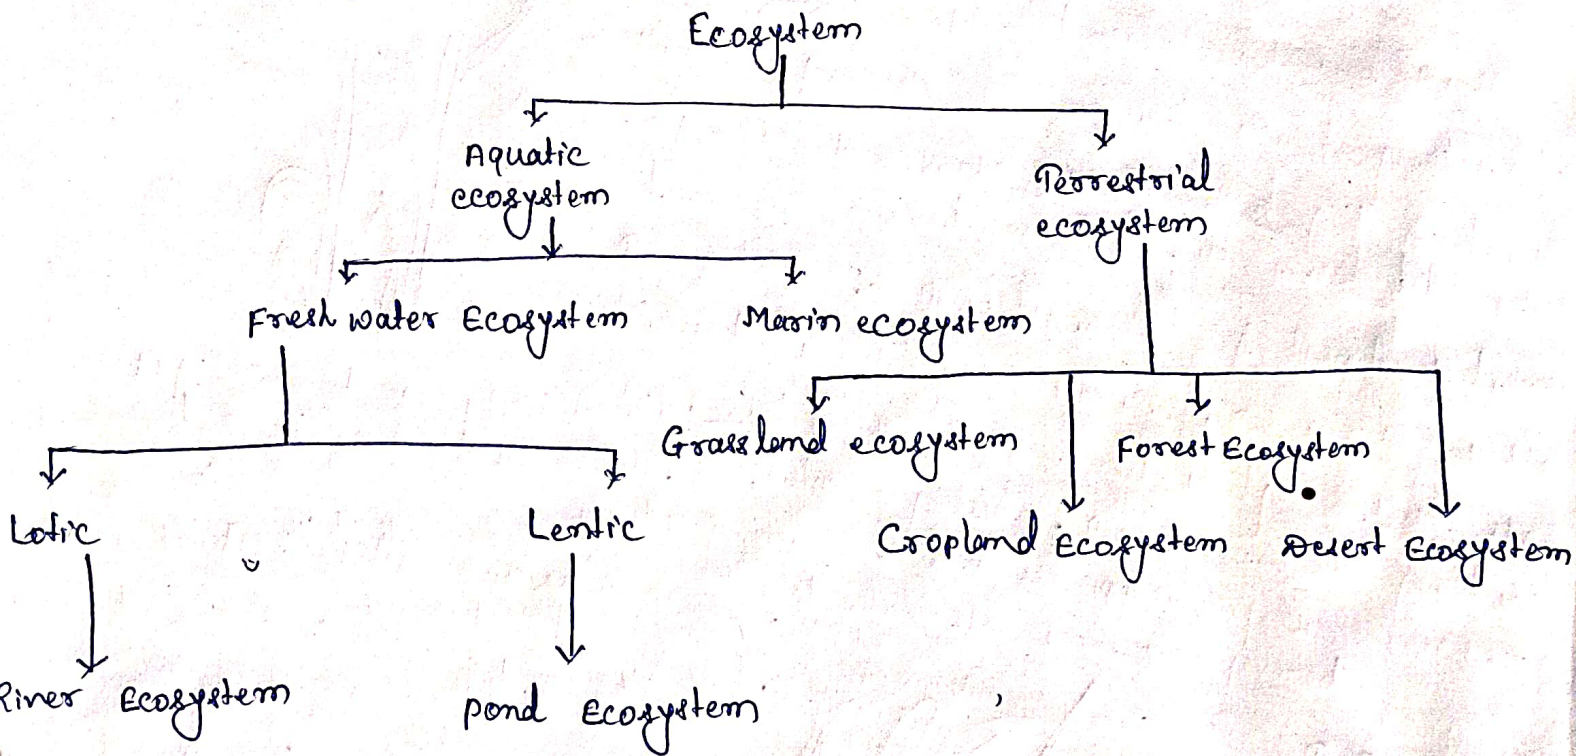 Ecosystem
Aquatic
ecosystem
Terrestrial
ecosystem
Fresh water Ecosystem
Marin ecosystem
Grassland ecosystem
Forest Ecosystem
Cropland Ecosystem
Desert Ecosystem
Lotic
Lentic
River Ecosystem
pond Ecosystem